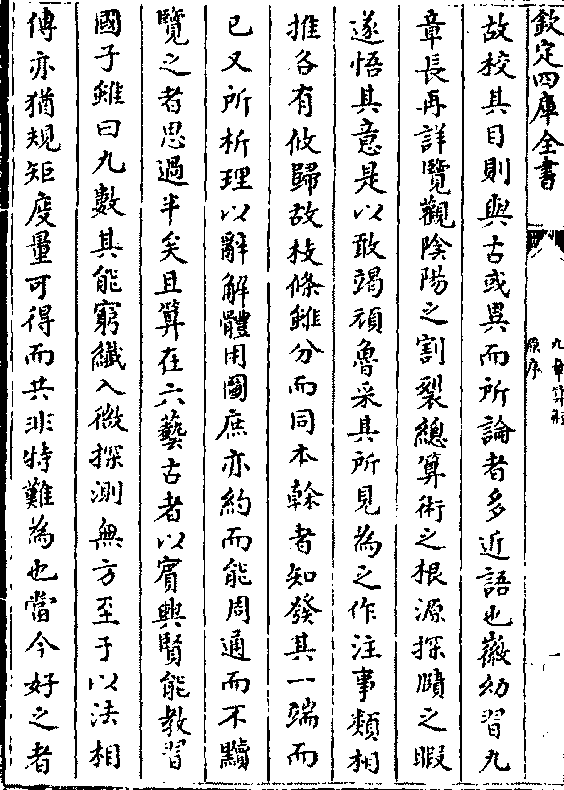 欽定四庫全書
九章算術
原序
故校其目則與古或異而所論者多近語也徽幼習九
章長再詳覽觀陰陽之割裂總算術之根源探賾之暇
遂悟其意是以敢竭頑魯采其所見為之作注事類相
推各有攸歸故枝條雖分而同本榦者知發其一端而
已又所析理以辭解體用圖庶亦約而能周通而不黷
覽之者思過半矣且算在六藝古者以賓興賢能教習
國子雖曰九數其能窮纎入微探測無方至于以法相
傳亦猶規矩度量可得而共非特難為也當今好之者